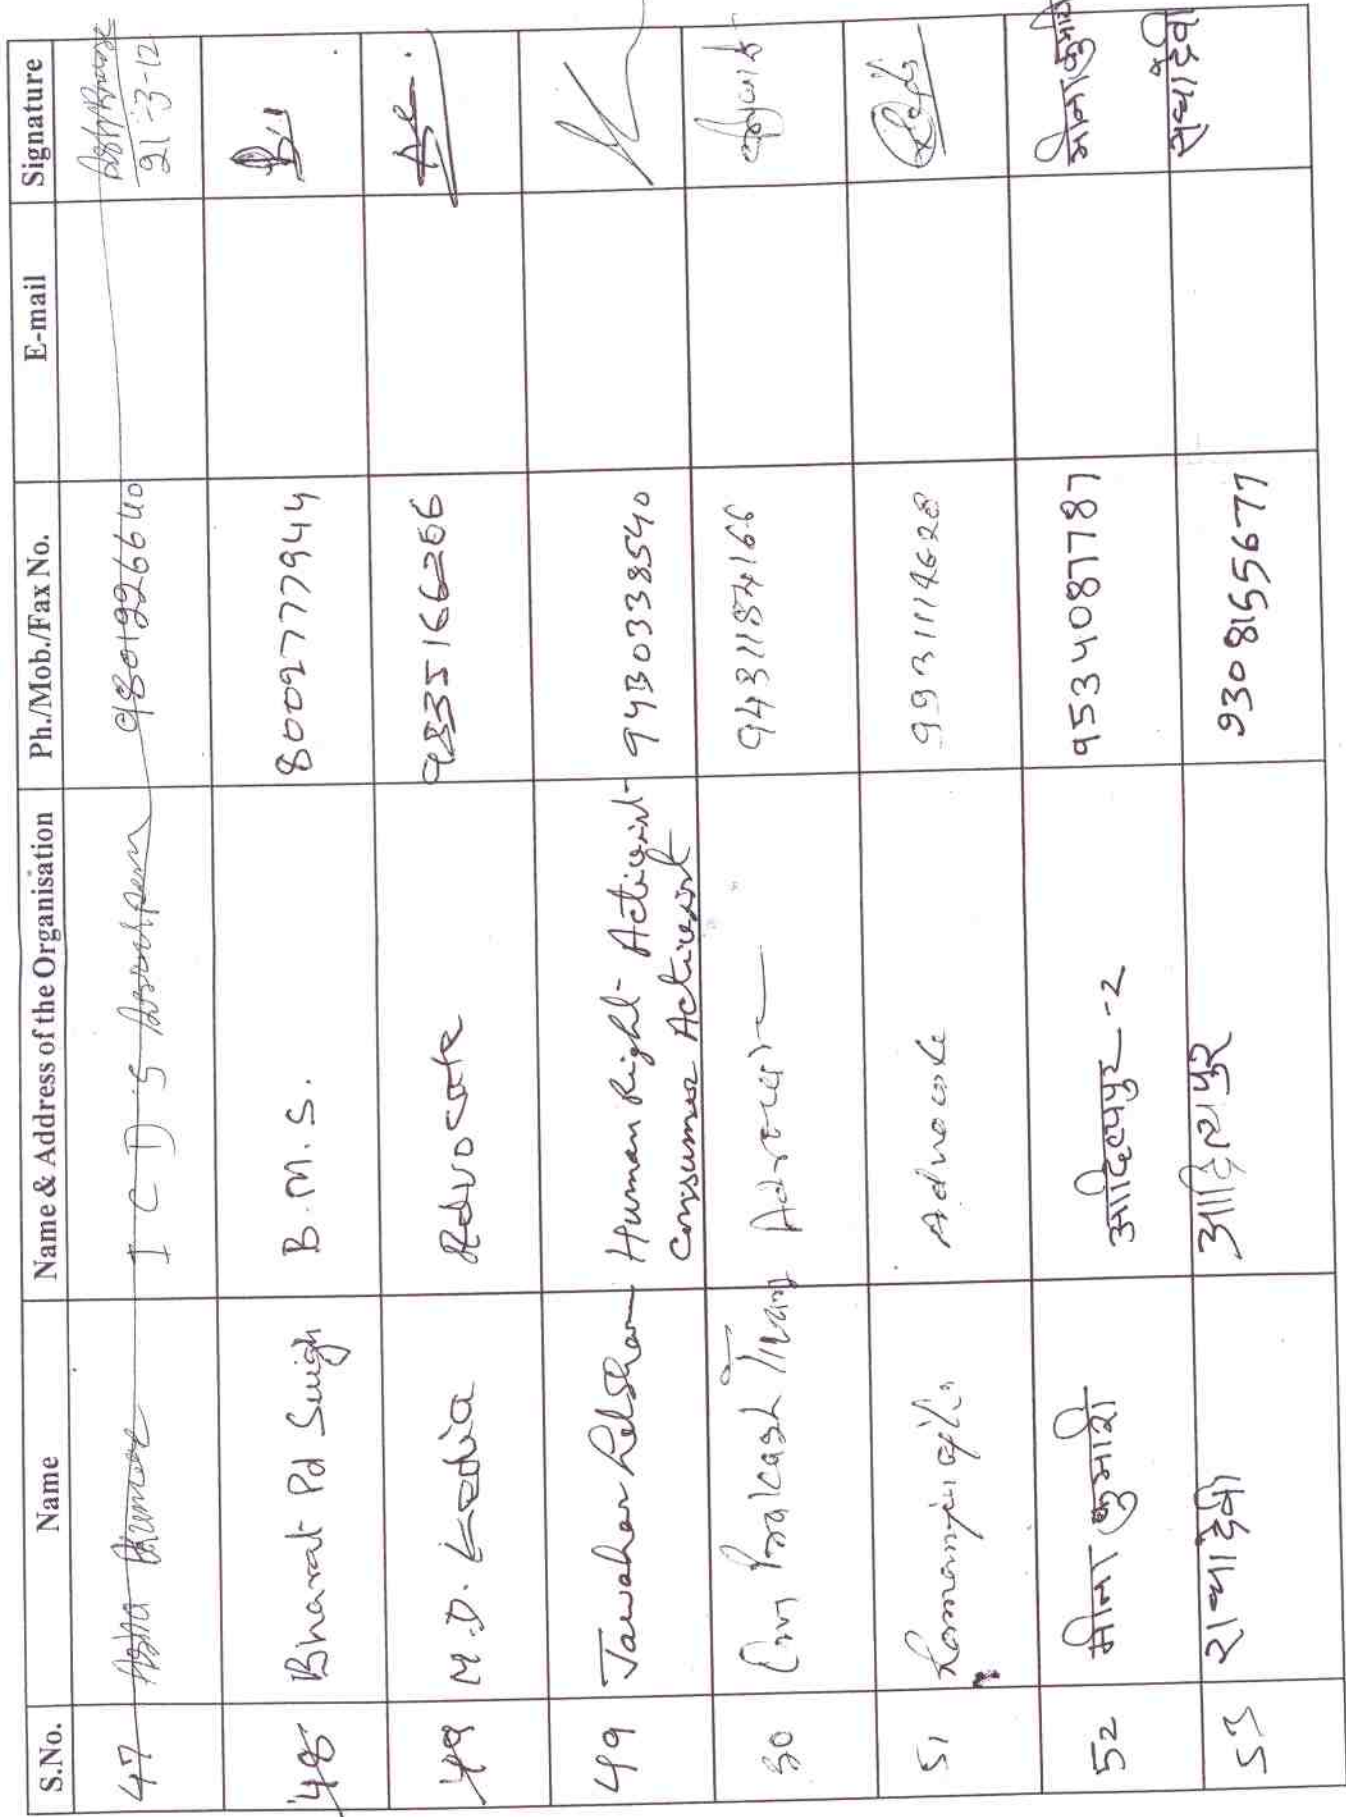 S.No. Name Name & Address of the Organisation Ph./Mob./Fax No. E-mail Signature
47 Asha Kumar I C D S 9801926640
21-3-12
48 Bharat Pd Singh B.M.S. 8002777944
49 M.D. Advocate 9835166266
49 Jawahar Lal Sharma Human Right Activist 9430338540
Consumer Activist
50 Om Prakash Advocate 9431184166
51 Advocate 9931114628
52 मीना कुमारी आदित्यपुर -2 9534087787 मीना कुमारी
53 राधा देवी आदित्यपुर 9308155677 राधा देवी